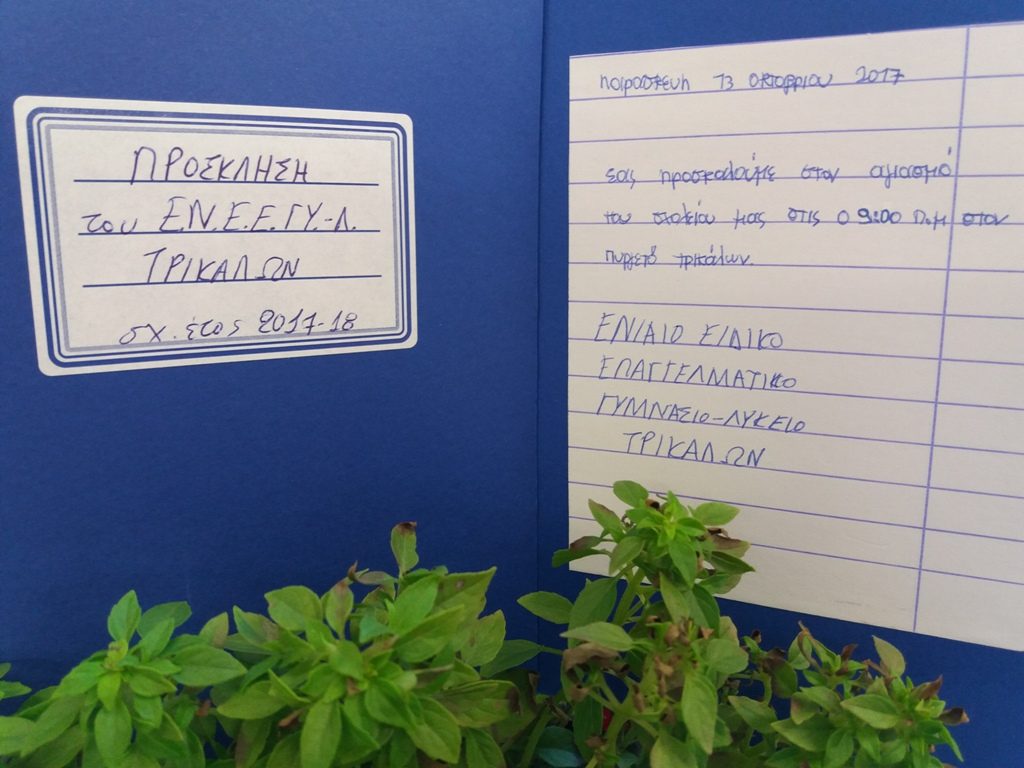 ΠΡΟΣΚΛΗΣΗ
του ΕΝ.Ε.Ε.ΓΥ.-Λ.
ΤΡΙΚΑΛΩΝ
σχ. έτος 2017-18
παρασκευη 13 οκτοβριου 2017
σας προσκαλούμε στον αγιασμό
του σχολείου μας στις 09:00 π.μ στον
πυργετό τρικάλων.
ΕΝΙΑΙΟ ΕΙΔΙΚΟ
ΕΠΑΓΓΕΛΜΑΤΙΚΟ
ΓΥΜΝΑΣΙΟ-ΛΥΚΕΙΟ
ΤΡΙΚΑΛΩΝ